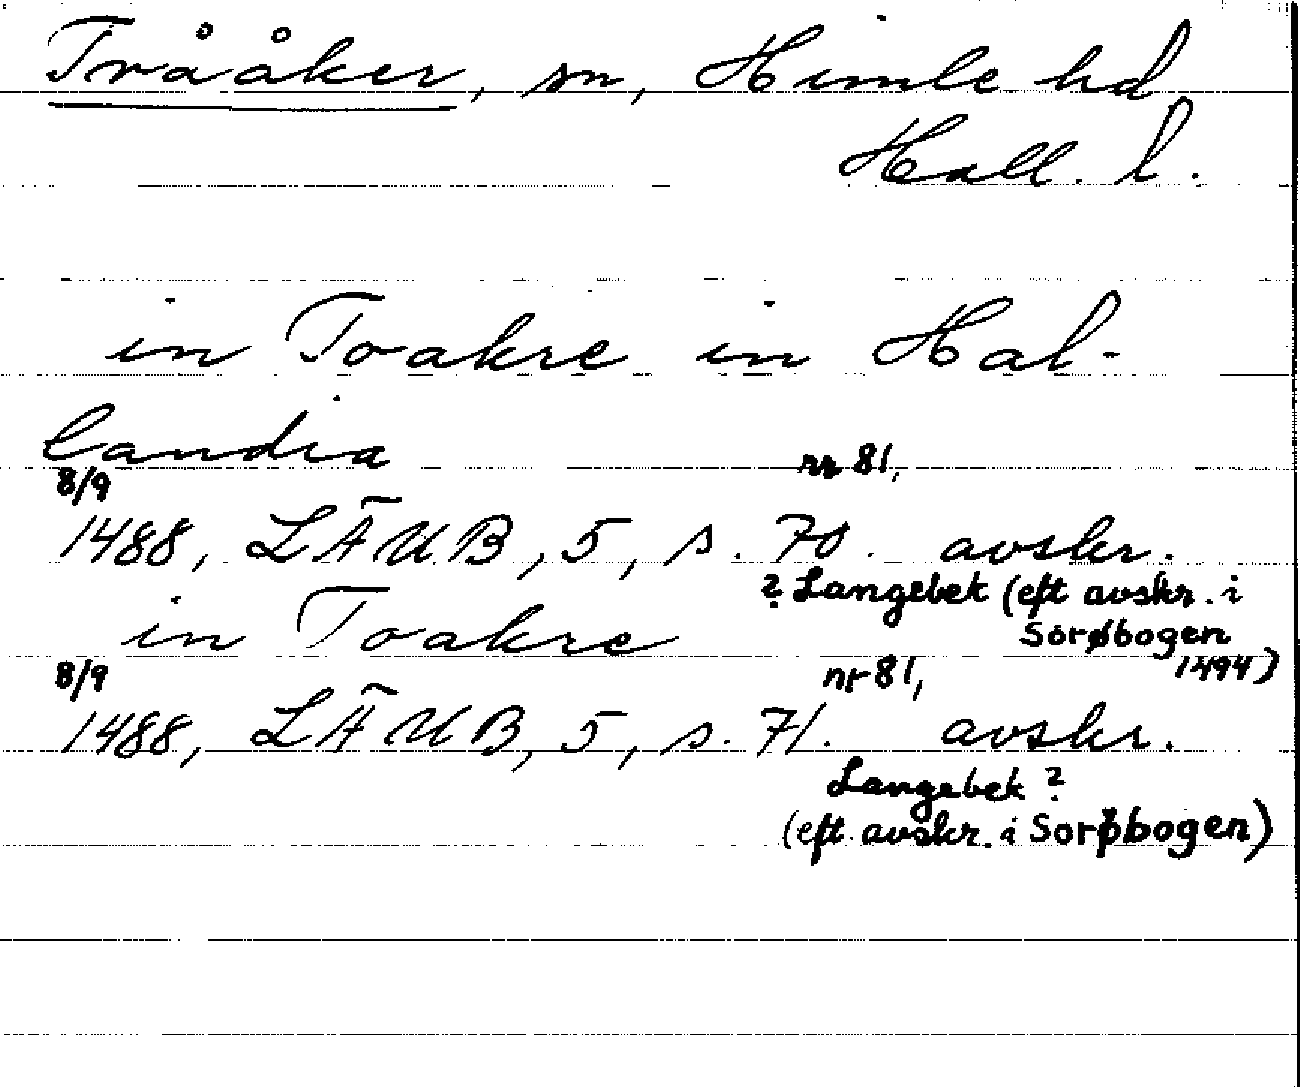 Tvååker, sn, Himle hd
Hall. l.
in Toakre in Hal-
landia
8/9 nr 81,
1488, LÄUB, 5, s. 70. avskr.
? Langebek (eft avskr. i
Sorøbogen
in Toakre
1494)
8/9 nr 81,
1488, LÄUB, 5, s. 71. avskr.
Langebek ?
(eft. avskr. i Sorøbogen)